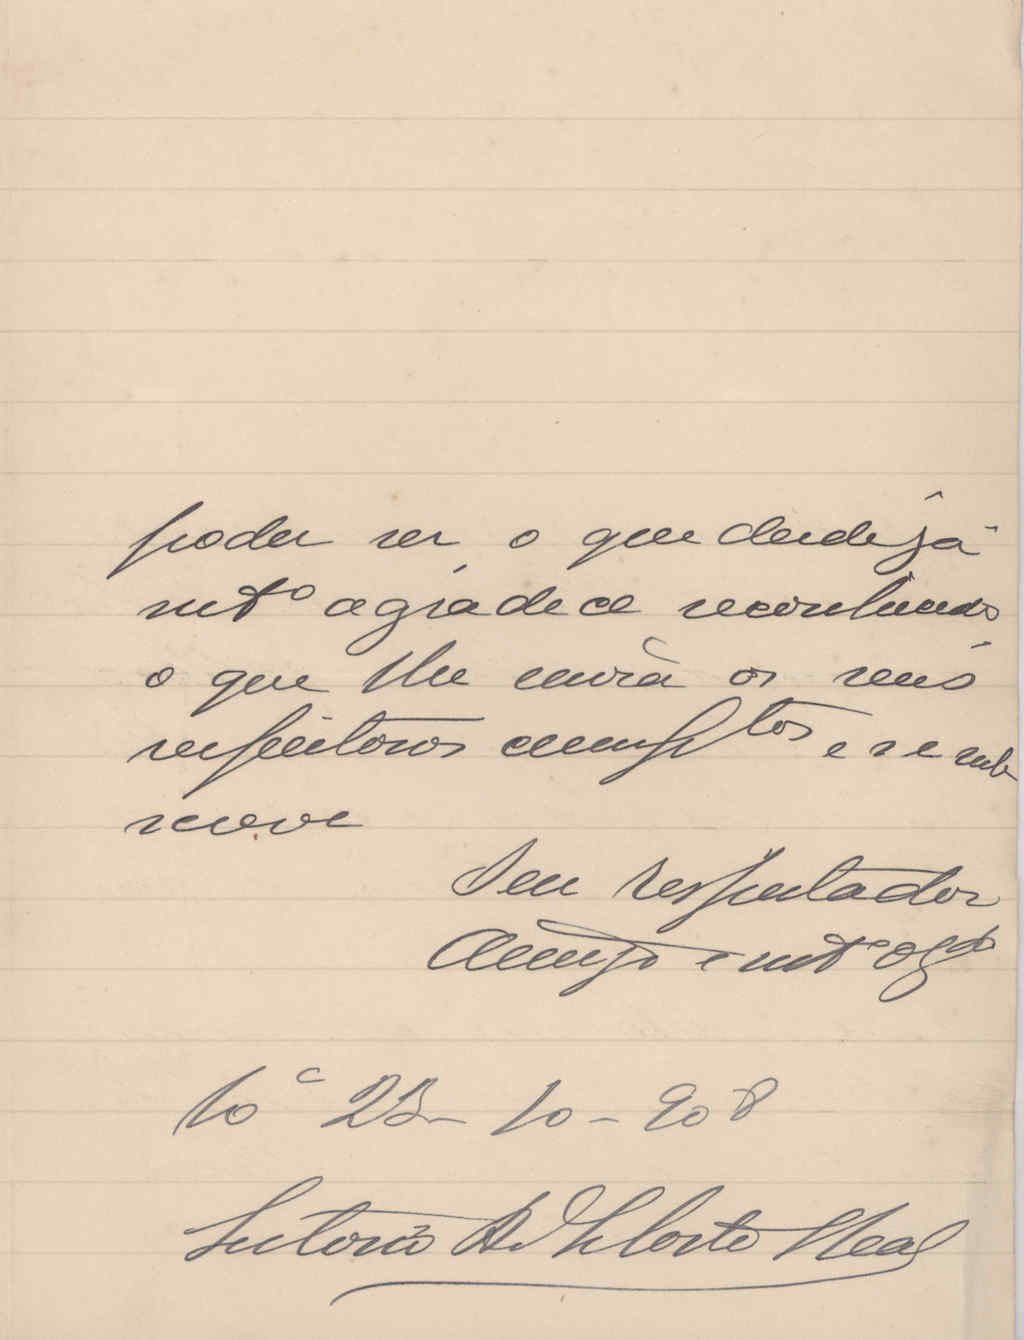 poder ser o que desde já
mto agradece reconhecendo
o que lhe envia os seus
respeitosos cumptos e se subs
creve
Seu respeitador
Amigo e mto obgdo
23-10-908
Antonio